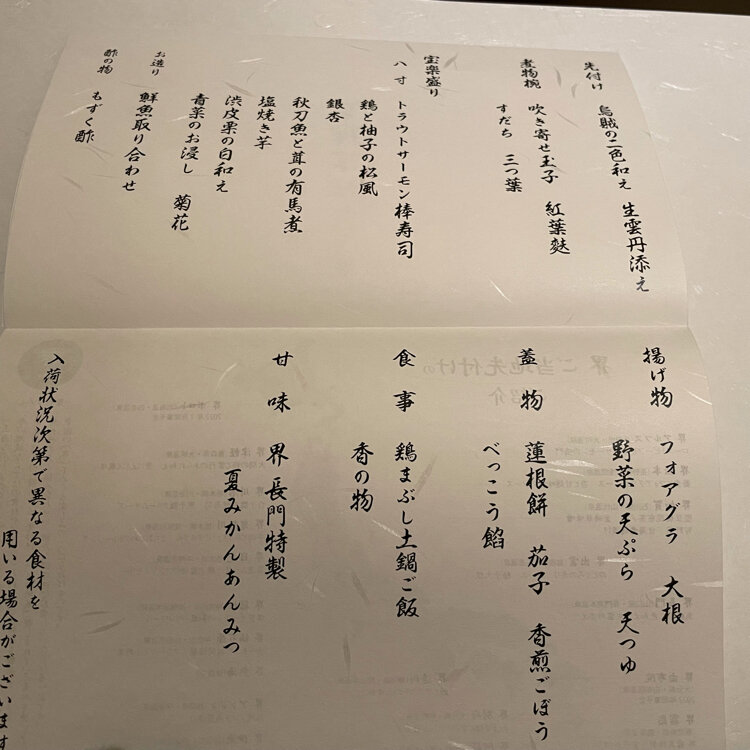 先付け 烏賊の二色和え 生雲丹添え
煮物椀 吹き寄せ玉子 紅葉麩
すだち 三つ葉
宝楽盛り
八寸 トラウトサーモン棒寿司
鶏と柚子の松風
銀杏
秋刀魚と茸の有馬煮
塩焼き芋
渋皮栗の白和え
青菜のお浸し 菊花
お造り 鮮魚取り合わせ
酢の物 もずく酢
揚げ物 フォアグラ 大根
野菜の天ぷら 天つゆ
蓋物 蓮根餅 茄子 香煎ごぼう
べっこう餡
食事 鶏まぶし土鍋ご飯
香の物
甘味 界 長門特製
夏みかんあんみつ
入荷状況次第で異なる食材を
用いる場合がございます